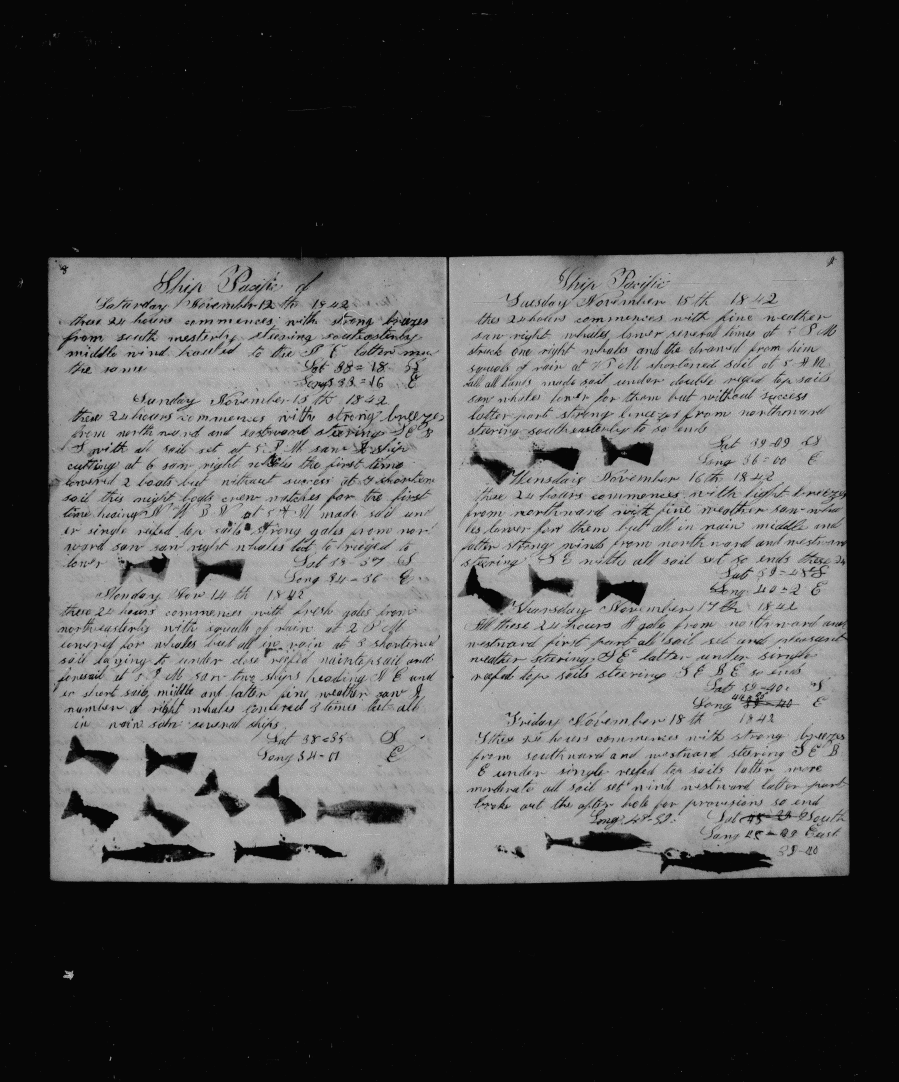 Ship Pacific of
Saturday November 12 th 1842
these 24 hours commences with strong breezes
from south westerly steering southeasterly
middle wind hauled to the S E latter more
the same Lat 38=18 S
Long 33=16 E
Sunday November 13 th 1842
these 24 hours commences with strong breezes
from northward and eastward steering S E B
S with all sail set at 5 P M saw a ship
cutting at 6 saw right whales the first time
lowered 2 boats but without success at 7 shorten
sail this night boats crew watches for the first
time heading at 5 A M made sail und
er single reefed top sails strong gales from nor
ward saw right whales but to
lower Lat 39-57 S
Long 34-56 E
Monday Nov 14 th 1842
these 24 hours commences with fresh gales from
northeasterly with squalls of rain at 2 P M
lowered for whales but all in vain at 3 shortened
sail laying to under close reefed maintopsail and
foresail at 5 P M saw two ships heading N E und
er short sail middle and latter fine weather saw a
number of right whales lowered 3 times but all
in vain saw several ships
Lat 38-35 S
Long 34-01 E
Ship Pacific
Tuesday November 15 th 1842
thes 24 hours commences with fine weather
saw right whales lower several times at 5 P M
struck one right whales and the drawed from him
squals of rain at 7 P M shortened sail at 5 A M
call all hands made sail under double reefed top sails
saw whales lower for them but without success
latter part strong breezes from northward
steering southeasterly so ends
Lat 39-09 S
Long 36=00 E
Wensdais November 16 th 1842
these 24 hours commences with light breezes
from northward with fine weather saw wha
les lower for them but all in vain middle and
latter strong winds from northward and westward
steering S E with all sail set so ends these 24
Lat 39-48 S
Long 40=2 E
Thursday November 17 th 1842
All these 24 hours A gale from northward and
westward first part all sail set and pleasant
weather steering S E latter under single
reefed top sails steering S E B E so ends
Lat 39-40 S
Long 44 E
Friday November 18 th 1842
These 24 hours commences with strong breezes
from southward and westward steering S E B
E under single reefed top sails latter more
moderate all sail set wind westward latter part
broke out the after hole for provisions so end
Long 48-52 Lat South
Long East
39-40